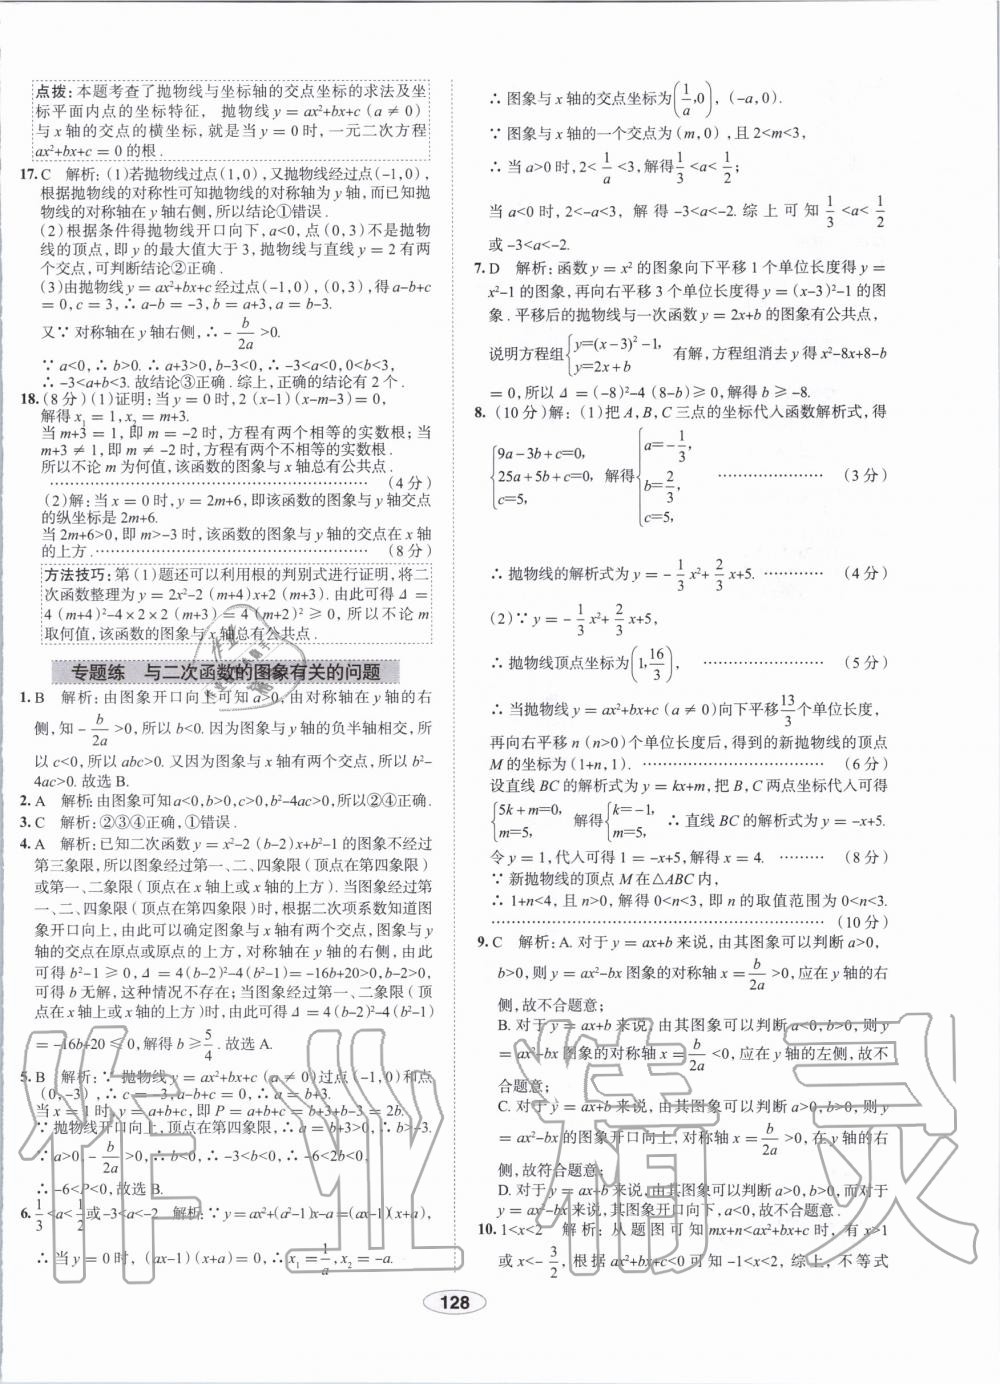 点拨：本题考查了抛物线与坐标轴的交点坐标的求法及坐
标平面内点的坐标特征，抛物线 y = ax²+bx+c（a ≠ 0）
与 x 轴的交点的横坐标，就是当 y = 0 时，一元二次方程
ax²+bx+c = 0 的根．
17. C　解析：（1）若抛物线过点（1，0），又抛物线经过点（-1，0），
根据抛物线的对称性可知抛物线的对称轴为 y 轴，而已知抛
物线的对称轴在 y 轴右侧，所以结论①错误．
（2）根据条件得抛物线开口向下，a<0，点（0，3）不是抛物
线的顶点，即 y 的最大值大于 3，抛物线与直线 y = 2 有两
个交点，可判断结论②正确．
（3）由抛物线 y = ax²+bx+c 经过点（-1，0），（0，3），得 a-b+c
= 0，c = 3，∴ a-b = -3，b = a+3，a = b-3.
又∵ 对称轴在 y 轴右侧，∴ -b/2a >0.
∵ a<0，∴ b>0. ∴ a+3>0，b-3<0，∴ -3<a<0，0<b<3，
∴ -3<a+b<3. 故结论③正确．综上，正确的结论有 2 个．
18.（8 分）（1）证明：当 y = 0 时，2（x-1）（x-m-3）= 0，
解得 x₁ = 1，x₂ = m+3.
当 m+3 = 1，即 m = -2 时，方程有两个相等的实数根；当
m+3 ≠ 1，即 m ≠ -2 时，方程有两个不相等的实数根．
所以不论 m 为何值，该函数的图象与 x 轴总有公共点．
……………………………………………………（4 分）
（2）解：当 x = 0 时，y = 2m+6，即该函数的图象与 y 轴交点
的纵坐标是 2m+6.
当 2m+6>0，即 m>-3 时，该函数的图象与 y 轴的交点在 x 轴
的上方．……………………………………………（8 分）
方法技巧：第（1）题还可以利用根的判别式进行证明，将二
次函数整理为 y = 2x²-2（m+4）x+2（m+3）. 由此可得 Δ =
4（m+4）²-4×2×2（m+3）= 4（m+2）² ≥ 0，所以不论 m
取何值，该函数的图象与 x 轴总有公共点．
专题练　与二次函数的图象有关的问题
1. B　解析：由图象开口向上可知 a>0，由对称轴在 y 轴的右
侧，知 -b/2a >0，所以 b<0. 因为图象与 y 轴的负半轴相交，所
以 c<0，所以 abc>0. 又因为图象与 x 轴有两个交点，所以 b²-
4ac>0. 故选 B.
2. A　解析：由图象可知 a<0，b>0，c>0，b²-4ac>0，所以②④正确．
3. C　解析：②③④正确，①错误．
4. A　解析：已知二次函数 y = x²-2（b-2）x+b²-1 的图象不经过
第三象限，所以图象经过第一、二、四象限（顶点在第四象限）
或第一、二象限（顶点在 x 轴上或 x 轴的上方）. 当图象经过第
一、二、四象限（顶点在第四象限）时，根据二次项系数知道图
象开口向上，由此可以确定图象与 x 轴有两个交点，图象与 y
轴的交点在原点或原点的上方，对称轴在 y 轴的右侧，由此
可得 b²-1 ≥ 0，Δ = 4（b-2）²-4（b²-1）= -16b+20>0，b-2>0；
可得 b 无解，这种情况不存在；当图象经过第一、二象限（顶
点在 x 轴上或 x 轴的上方）时，由此可得 Δ = 4（b-2）²-4（b²-1）
= -16b+20 ≤ 0，解得 b ≥ 5/4 . 故选 A.
5. B　解析：∵ 抛物线 y = ax²+bx+c（a ≠ 0）过点（-1，0）和点
（0，-3），∴ c = -3，a-b+c = 0，∴ a = b+3.
当 x = 1 时，y = a+b+c，即 P = a+b+c = b+3+b-3 = 2b.
∵ 抛物线开口向上，顶点在第四象限，∴ a = b+3>0，∴ b>-3.
∵ a>0，-b/2a >0，∴ b<0，∴ -3<b<0，∴ -6<2b<0，
∴ -6<P<0，故选 B.
6. 1/3 <a< 1/2 或 -3<a<-2　解析：∵ y = ax²+（a²-1）x-a =（ax-1）（x+a），
∴ 当 y = 0 时，（ax-1）（x+a）= 0，∴ x₁ = 1/a，x₂ = -a.
∴ 图象与 x 轴的交点坐标为（1/a，0），（-a，0）.
∵ 图象与 x 轴的一个交点为（m，0），且 2<m<3，
∴ 当 a>0 时，2< 1/a <3，解得 1/3 <a< 1/2；
当 a<0 时，2<-a<3，解得 -3<a<-2. 综上可知 1/3 <a< 1/2
或 -3<a<-2.
7. D　解析：函数 y = x² 的图象向下平移 1 个单位长度得 y =
x²-1 的图象，再向右平移 3 个单位长度得 y =（x-3）²-1 的图
象．平移后的抛物线与一次函数 y = 2x+b 的图象有公共点，
说明方程组{y=（x-3）²-1，y=2x+b 有解，方程组消去 y 得 x²-8x+8-b
= 0，所以 Δ =（-8）²-4（8-b）≥ 0，解得 b ≥ -8.
8.（10 分）解：（1）把 A，B，C 三点的坐标代入函数解析式，得
{9a-3b+c=0，25a+5b+c=0，c=5，解得{a=-1/3，b=2/3，c=5，……………（3 分）
∴ 抛物线的解析式为 y = -1/3 x²+ 2/3 x+5. …………（4 分）
（2）∵ y = -1/3 x²+ 2/3 x+5，
∴ 抛物线顶点坐标为（1，16/3），……………………（5 分）
∴ 当抛物线 y = ax²+bx+c（a ≠ 0）向下平移 13/3 个单位长度，
再向右平移 n（n>0）个单位长度后，得到的新抛物线的顶点
M 的坐标为（1+n，1）. ……………………………（6 分）
设直线 BC 的解析式为 y = kx+m，把 B，C 两点坐标代入可得
{5k+m=0，m=5，解得{k=-1，m=5，∴ 直线 BC 的解析式为 y = -x+5.
令 y = 1，代入可得 1 = -x+5，解得 x = 4. …………（8 分）
∵ 新抛物线的顶点 M 在△ABC 内，
∴ 1+n<4，且 n>0，解得 0<n<3，即 n 的取值范围为 0<n<3.
……………………………………………………（10 分）
9. C　解析：A. 对于 y = ax+b 来说，由其图象可以判断 a>0，
b>0，则 y = ax²-bx 图象的对称轴 x = b/2a >0，应在 y 轴的右
侧，故不合题意；
B. 对于 y = ax+b 来说，由其图象可以判断 a<0，b>0，则 y
= ax²-bx 图象的对称轴 x = b/2a <0，应在 y 轴的左侧，故不
合题意；
C. 对于 y = ax+b 来说，由其图象可以判断 a>0，b>0，则 y
= ax²-bx 的图象开口向上，对称轴 x = b/2a >0，在 y 轴的右
侧，故符合题意；
D. 对于 y = ax+b 来说，由其图象可以判断 a>0，b>0，而对于
y = ax²-bx 来说，其图象开口向下，a<0，故不合题意．
10. 1<x<2　解析：从题图可知 mx+n<ax²+bx+c 时，有 x>1
或 x<-3/2，根据 ax²+bx+c<0 可知 -1<x<2，综上，不等式
128
作业精灵